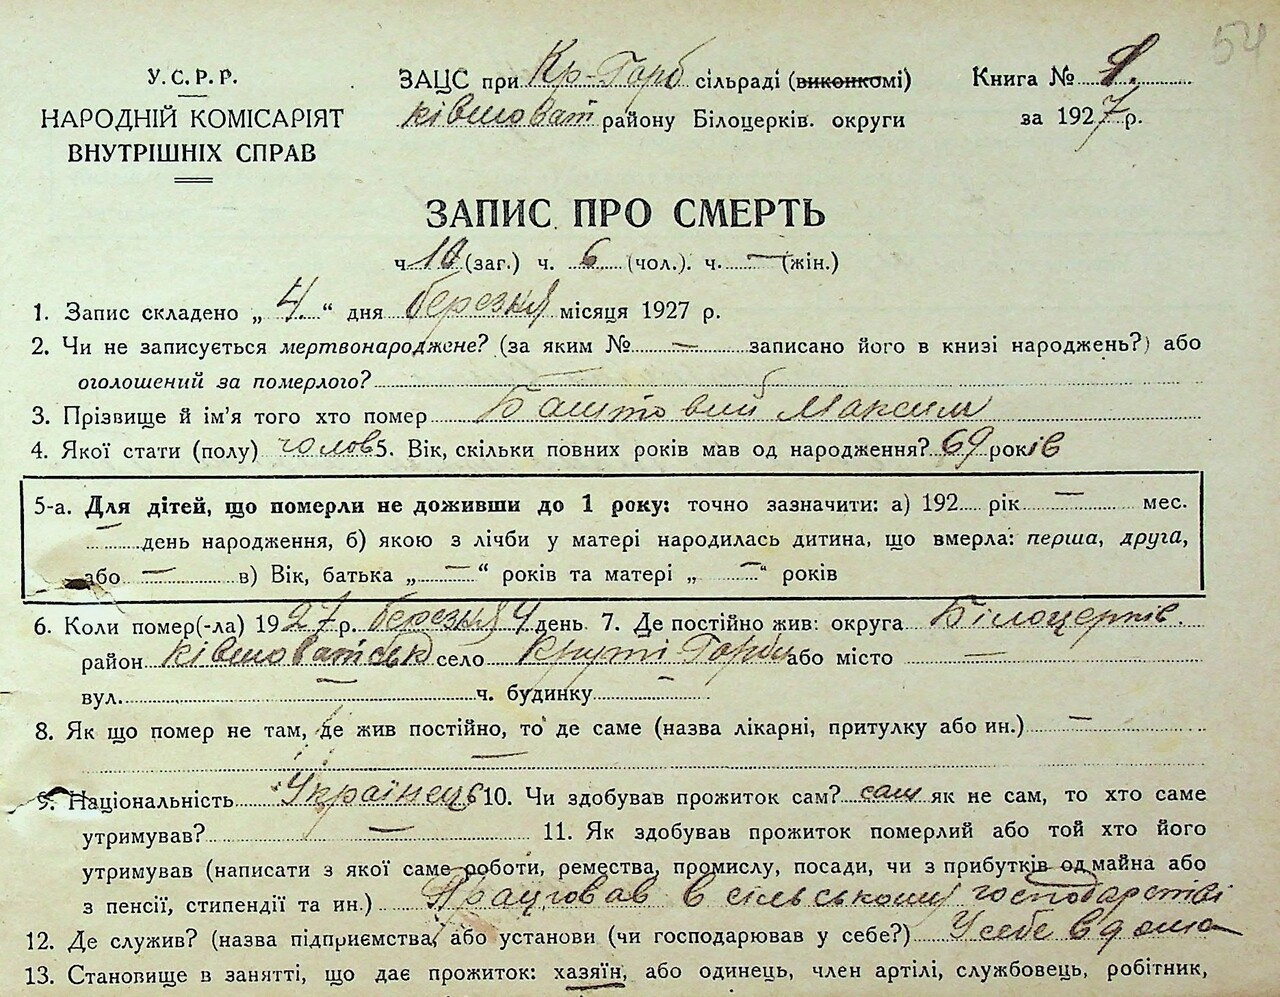 54
У.С.Р.Р.
НАРОДНІЙ КОМІСАРІЯТ
ВНУТРІШНІХ СПРАВ
ЗАЦС при Кр-Горб сільраді (виконкомі)
ківшоват району Білоцерків. округи
Книга № 1.
за 1927 р.
ЗАПИС ПРО СМЕРТЬ
ч 10 (заг.) ч. 6 (чол.). ч. — (жін.)
1. Запис складено „ 4. “ дня березня місяця 1927 р.
2. Чи не записується мертвонароджене? (за яким № — записано його в книзі народжень?) або
оголошений за померлого?
3. Прізвище й ім'я того хто помер Баштовий Максим
4. Якої стати (полу) чолов 5. Вік, скільки повних років мав од народження? 69 років
5-а. Для дітей, що померли не доживши до 1 року: точно зазначити: а) 192 рік — мес.
— день народження, б) якою з лічби у матері народилась дитина, що вмерла: перша, друга,
або — в) Вік, батька „ — “ років та матері „ — “ років
6. Коли помер(-ла) 1927 р. березня 4 день 7. Де постійно жив: округа Білоцерків.
район ківшоватськ село Круті Горби або місто —
вул. — ч. будинку —
8. Як що помер не там, де жив постійно, то де саме (назва лікарні, притулку або ин.) —
—
9. Національність Українець 10. Чи здобував прожиток сам? сам як не сам, то хто саме
утримував? — 11. Як здобував прожиток померлий або той хто його
утримував (написати з якої саме роботи, ремества, промислу, посади, чи з прибутків од майна або
з пенсії, стипендії та ин.) Працював в сільському господарстві
12. Де служив? (назва підприємства, або установи (чи господарював у себе?) У себе вдома
13. Становище в занятті, що дає прожиток: хазяїн, або одинець, член артілі, службовець, робітник,